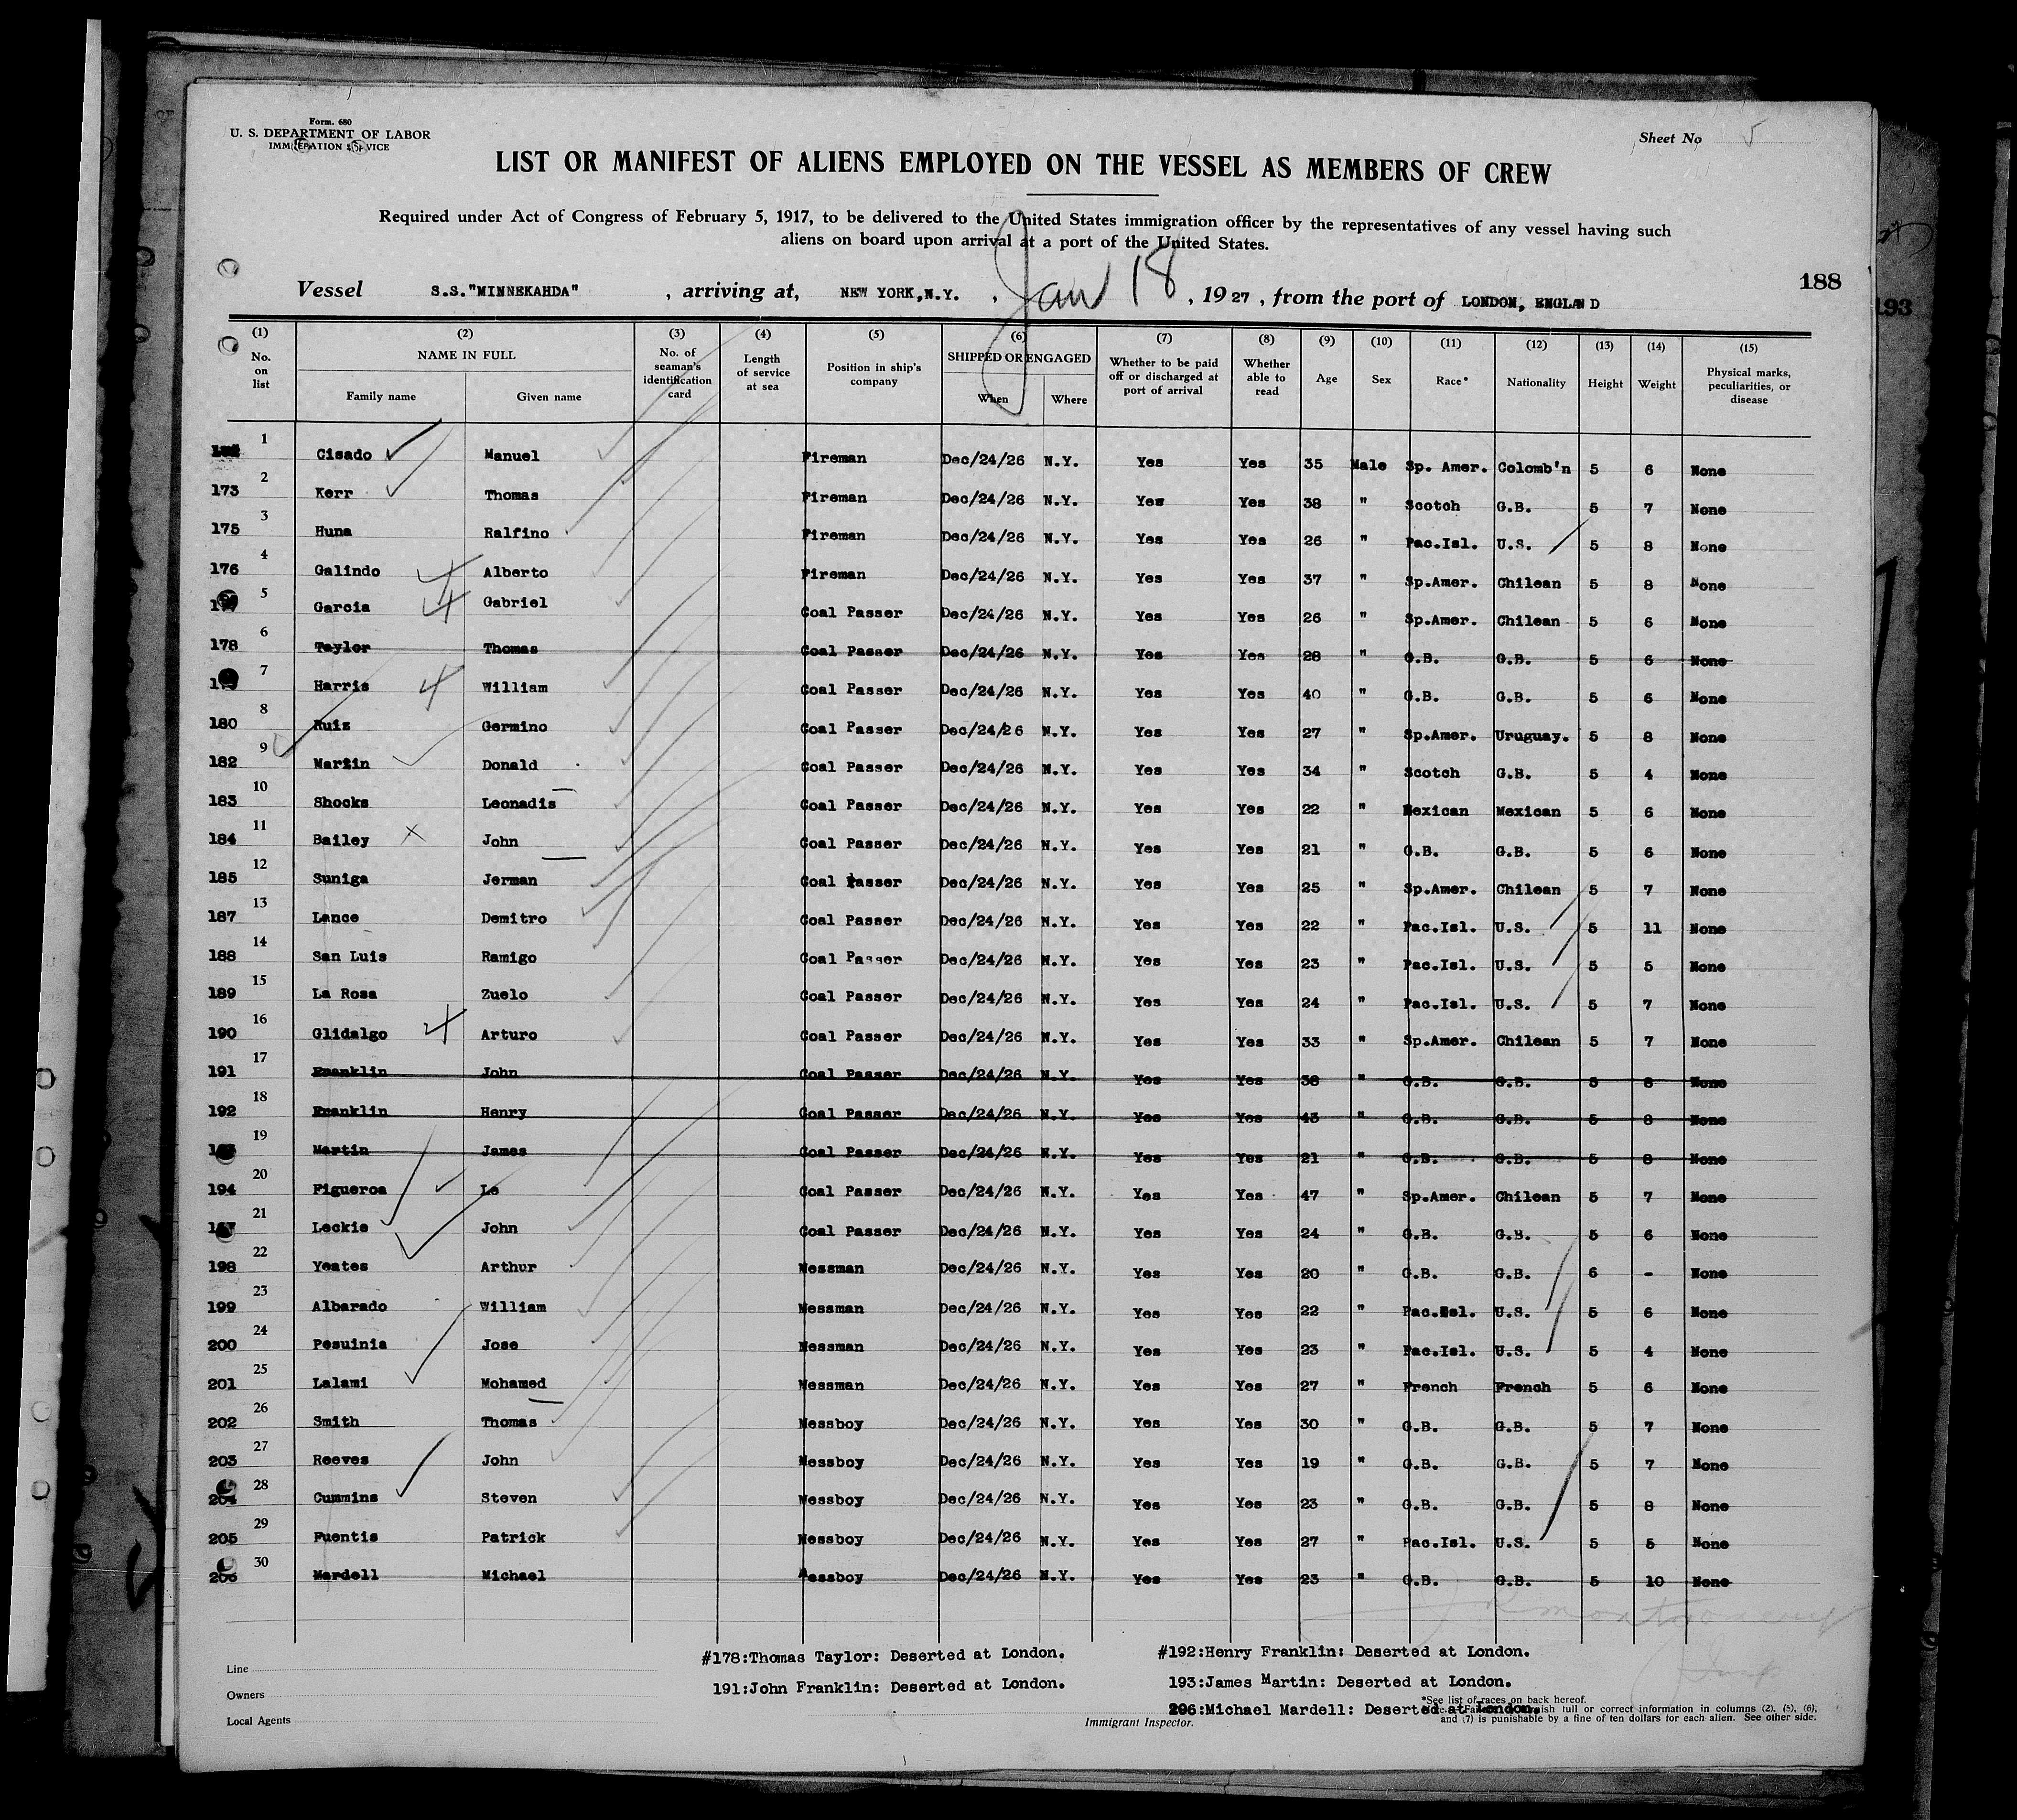 Form. 680
U. S. DEPARTMENT OF LABOR
Sheet No 5
LIST OR MANIFEST OF ALIENS EMPLOYED ON THE VESSEL AS MEMBERS OF CREW
Required under Act of Congress of February 5, 1917, to be delivered to the United States immigration officer by the representatives of any vessel having such
aliens on board upon arrival at a port of the United States.
188
193
Vessel S.S."MINNEKAHDA" , arriving at, NEW YORK,N.Y. , Jan 18 , 1927 , from the port of LONDON, ENGLAND
(1) No. on list (2) NAME IN FULL Family name Given name (3) No. of seaman's identification card (4) Length of service at sea (5) Position in ship's company (6) SHIPPED OR ENGAGED When Where (7) Whether to be paid off or discharged at port of arrival (8) Whether able to read (9) Age (10) Sex (11) Race* (12) Nationality (13) Height (14) Weight (15) Physical marks, peculiarities, or disease
1 Cisado Manuel Fireman Dec/24/26 N.Y. Yes Yes 35 Male Sp. Amer. Colomb'n 5 6 None
173 2 Kerr Thomas Fireman Dec/24/26 N.Y. Yes Yes 38 " Scotch G.B. 5 7 None
175 3 Huna Ralfino Fireman Dec/24/26 N.Y. Yes Yes 26 " Pac.Isl. U.S. 5 8 None
176 4 Galindo Alberto Fireman Dec/24/26 N.Y. Yes Yes 37 " Sp.Amer. Chilean 5 8 None
5 Garcia Gabriel Coal Passer Dec/24/26 N.Y. Yes Yes 26 " Sp.Amer. Chilean 5 6 None
178 6 Taylor Thomas Coal Passer Dec/24/26 N.Y. Yes Yes 28 " G.B. G.B. 5 6 None
7 Harris William Coal Passer Dec/24/26 N.Y. Yes Yes 40 " G.B. G.B. 5 6 None
180 8 Ruiz Germino Coal Passer Dec/24/26 N.Y. Yes Yes 27 " Sp.Amer. Uruguay. 5 8 None
182 9 Martin Donald Coal Passer Dec/24/26 N.Y. Yes Yes 34 " Scotch G.B. 5 4 None
183 10 Shocks Leonadis Coal Passer Dec/24/26 N.Y. Yes Yes 22 " Mexican Mexican 5 6 None
184 11 Bailey John Coal Passer Dec/24/26 N.Y. Yes Yes 21 " G.B. G.B. 5 6 None
185 12 Suniga Jerman Coal Passer Dec/24/26 N.Y. Yes Yes 25 " Sp.Amer. Chilean 5 7 None
187 13 Lance Demitro Coal Passer Dec/24/26 N.Y. Yes Yes 22 " Pac.Isl. U.S. 5 11 None
188 14 San Luis Ramigo Coal Passer Dec/24/26 N.Y. Yes Yes 23 " Pac.Isl. U.S. 5 5 None
189 15 La Rosa Zuelo Coal Passer Dec/24/26 N.Y. Yes Yes 24 " Pac.Isl. U.S. 5 7 None
190 16 Glidalgo Arturo Coal Passer Dec/24/26 N.Y. Yes Yes 33 " Sp.Amer. Chilean 5 7 None
191 17 Franklin John Coal Passer Dec/24/26 N.Y. Yes Yes 38 " G.B. G.B. 5 8 None
192 18 Franklin Henry Coal Passer Dec/24/26 N.Y. Yes Yes 43 " G.B. G.B. 5 8 None
19 Martin James Coal Passer Dec/24/26 N.Y. Yes Yes 21 " G.B. G.B. 5 8 None
194 20 Figueroa Le Coal Passer Dec/24/26 N.Y. Yes Yes 47 " Sp.Amer. Chilean 5 7 None
21 Leckie John Coal Passer Dec/24/26 N.Y. Yes Yes 24 " G.B. G.B. 5 6 None
198 22 Yeates Arthur Messman Dec/24/26 N.Y. Yes Yes 20 " G.B. G.B. 6 - None
199 23 Albarado William Messman Dec/24/26 N.Y. Yes Yes 22 " Pac.Isl. U.S. 5 6 None
200 24 Pesuinia Jose Messman Dec/24/26 N.Y. Yes Yes 23 " Pac.Isl. U.S. 5 4 None
201 25 Lalami Mohamed Messman Dec/24/26 N.Y. Yes Yes 27 " French French 5 6 None
202 26 Smith Thomas Messboy Dec/24/26 N.Y. Yes Yes 30 " G.B. G.B. 5 7 None
203 27 Reeves John Messboy Dec/24/26 N.Y. Yes Yes 19 " G.B. G.B. 5 7 None
204 28 Cummins Steven Messboy Dec/24/26 N.Y. Yes Yes 23 " G.B. G.B. 5 8 None
205 29 Fuentis Patrick Messboy Dec/24/26 N.Y. Yes Yes 27 " Pac.Isl. U.S. 5 5 None
206 30 Mardell Michael Messboy Dec/24/26 N.Y. Yes Yes 23 " G.B. G.B. 5 10 None
#178:Thomas Taylor: Deserted at London. #192:Henry Franklin: Deserted at London.
191:John Franklin: Deserted at London. 193:James Martin: Deserted at London.
206:Michael Mardell: Deserted at London.
Line
Owners
Local Agents
Immigrant Inspector.
*See list of races on back hereof.
full or correct information in columns (2), (5), (6),
and (7) is punishable by a fine of ten dollars for each alien. See other side.